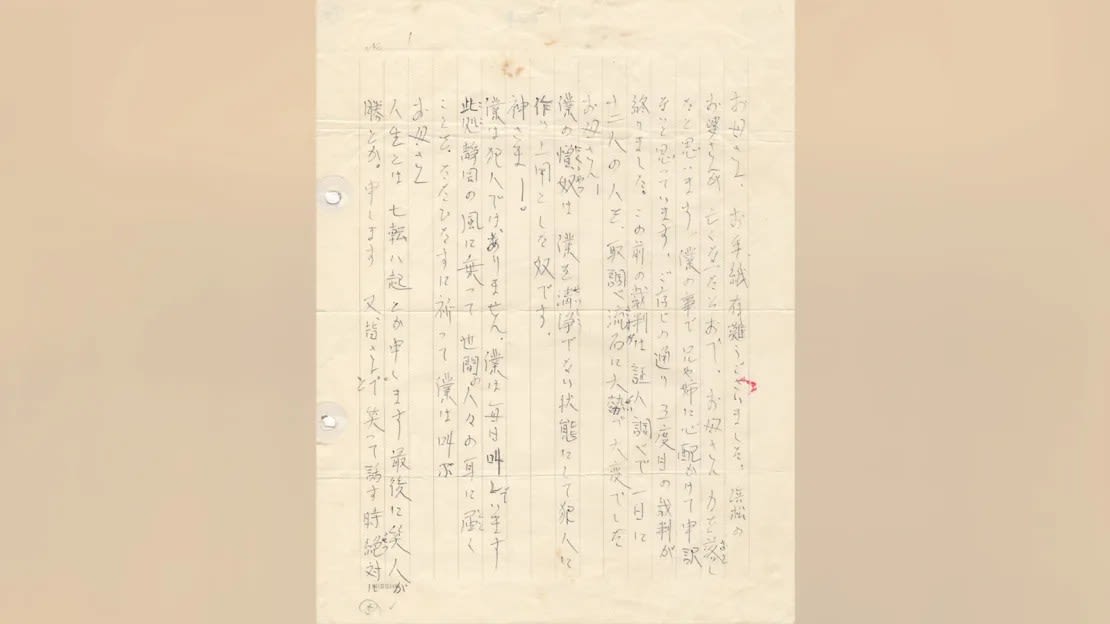 お母さん、お手紙有難うございました。浜松の
お婆さんが亡くなったそおで、お母さん力を落し
たと思います。僕の事で兄や姉に心配かけて申訳
ないと思っています。ご存じの通り 3度目の裁判が
終りました。この前の裁判は証人調べで一日に
十二人の人を、取調べ流石に大勢で大変でした
お母さん！
僕の憎奴は 僕を清浄でない状態にして犯人に
作り上用とした奴です。
神さま－！。
僕は犯人では、ありません、僕は毎日叫んでいます
此処静岡の風に乗って 世間の人々の耳に届く
ことを、ただひたすらに祈って僕は叫ぶ
お母さん
人生とは 七転八起とか申します 最後に笑人が
勝とか。申します 又、皆さんで笑って話す時絶対に